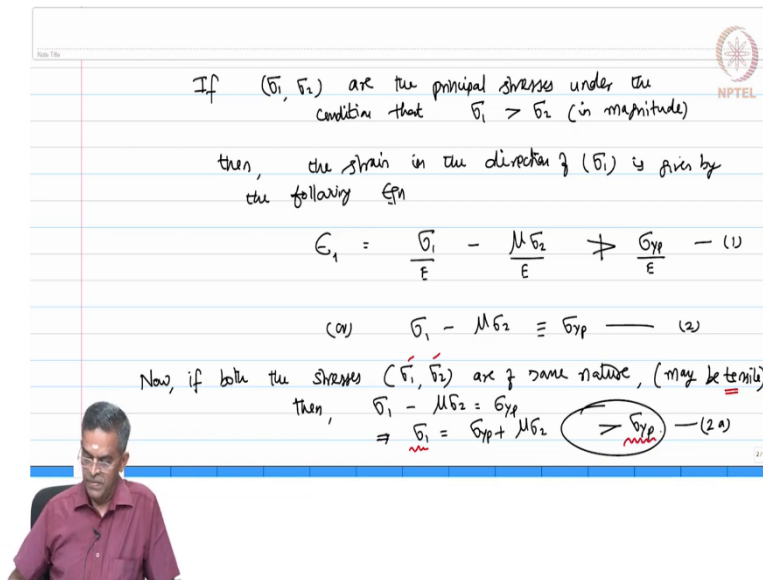 Note Title
NPTEL
If (σ1, σ2) are the principal stresses under the
condition that σ1 > σ2 (in magnitude)
then, the strain in the direction of (σ1) is given by
the following Eqn
ϵ1 = σ1/E - μσ2/E ≯ σyp/E — (1)
(or) σ1 - μσ2 ≡ σyp — (2)
Now, if both the stresses (σ1, σ2) are of same nature, (may be tensile)
then, σ1 - μσ2 = σyp
⇒ σ1 = σyp + μσ2 > σyp. — (2a)